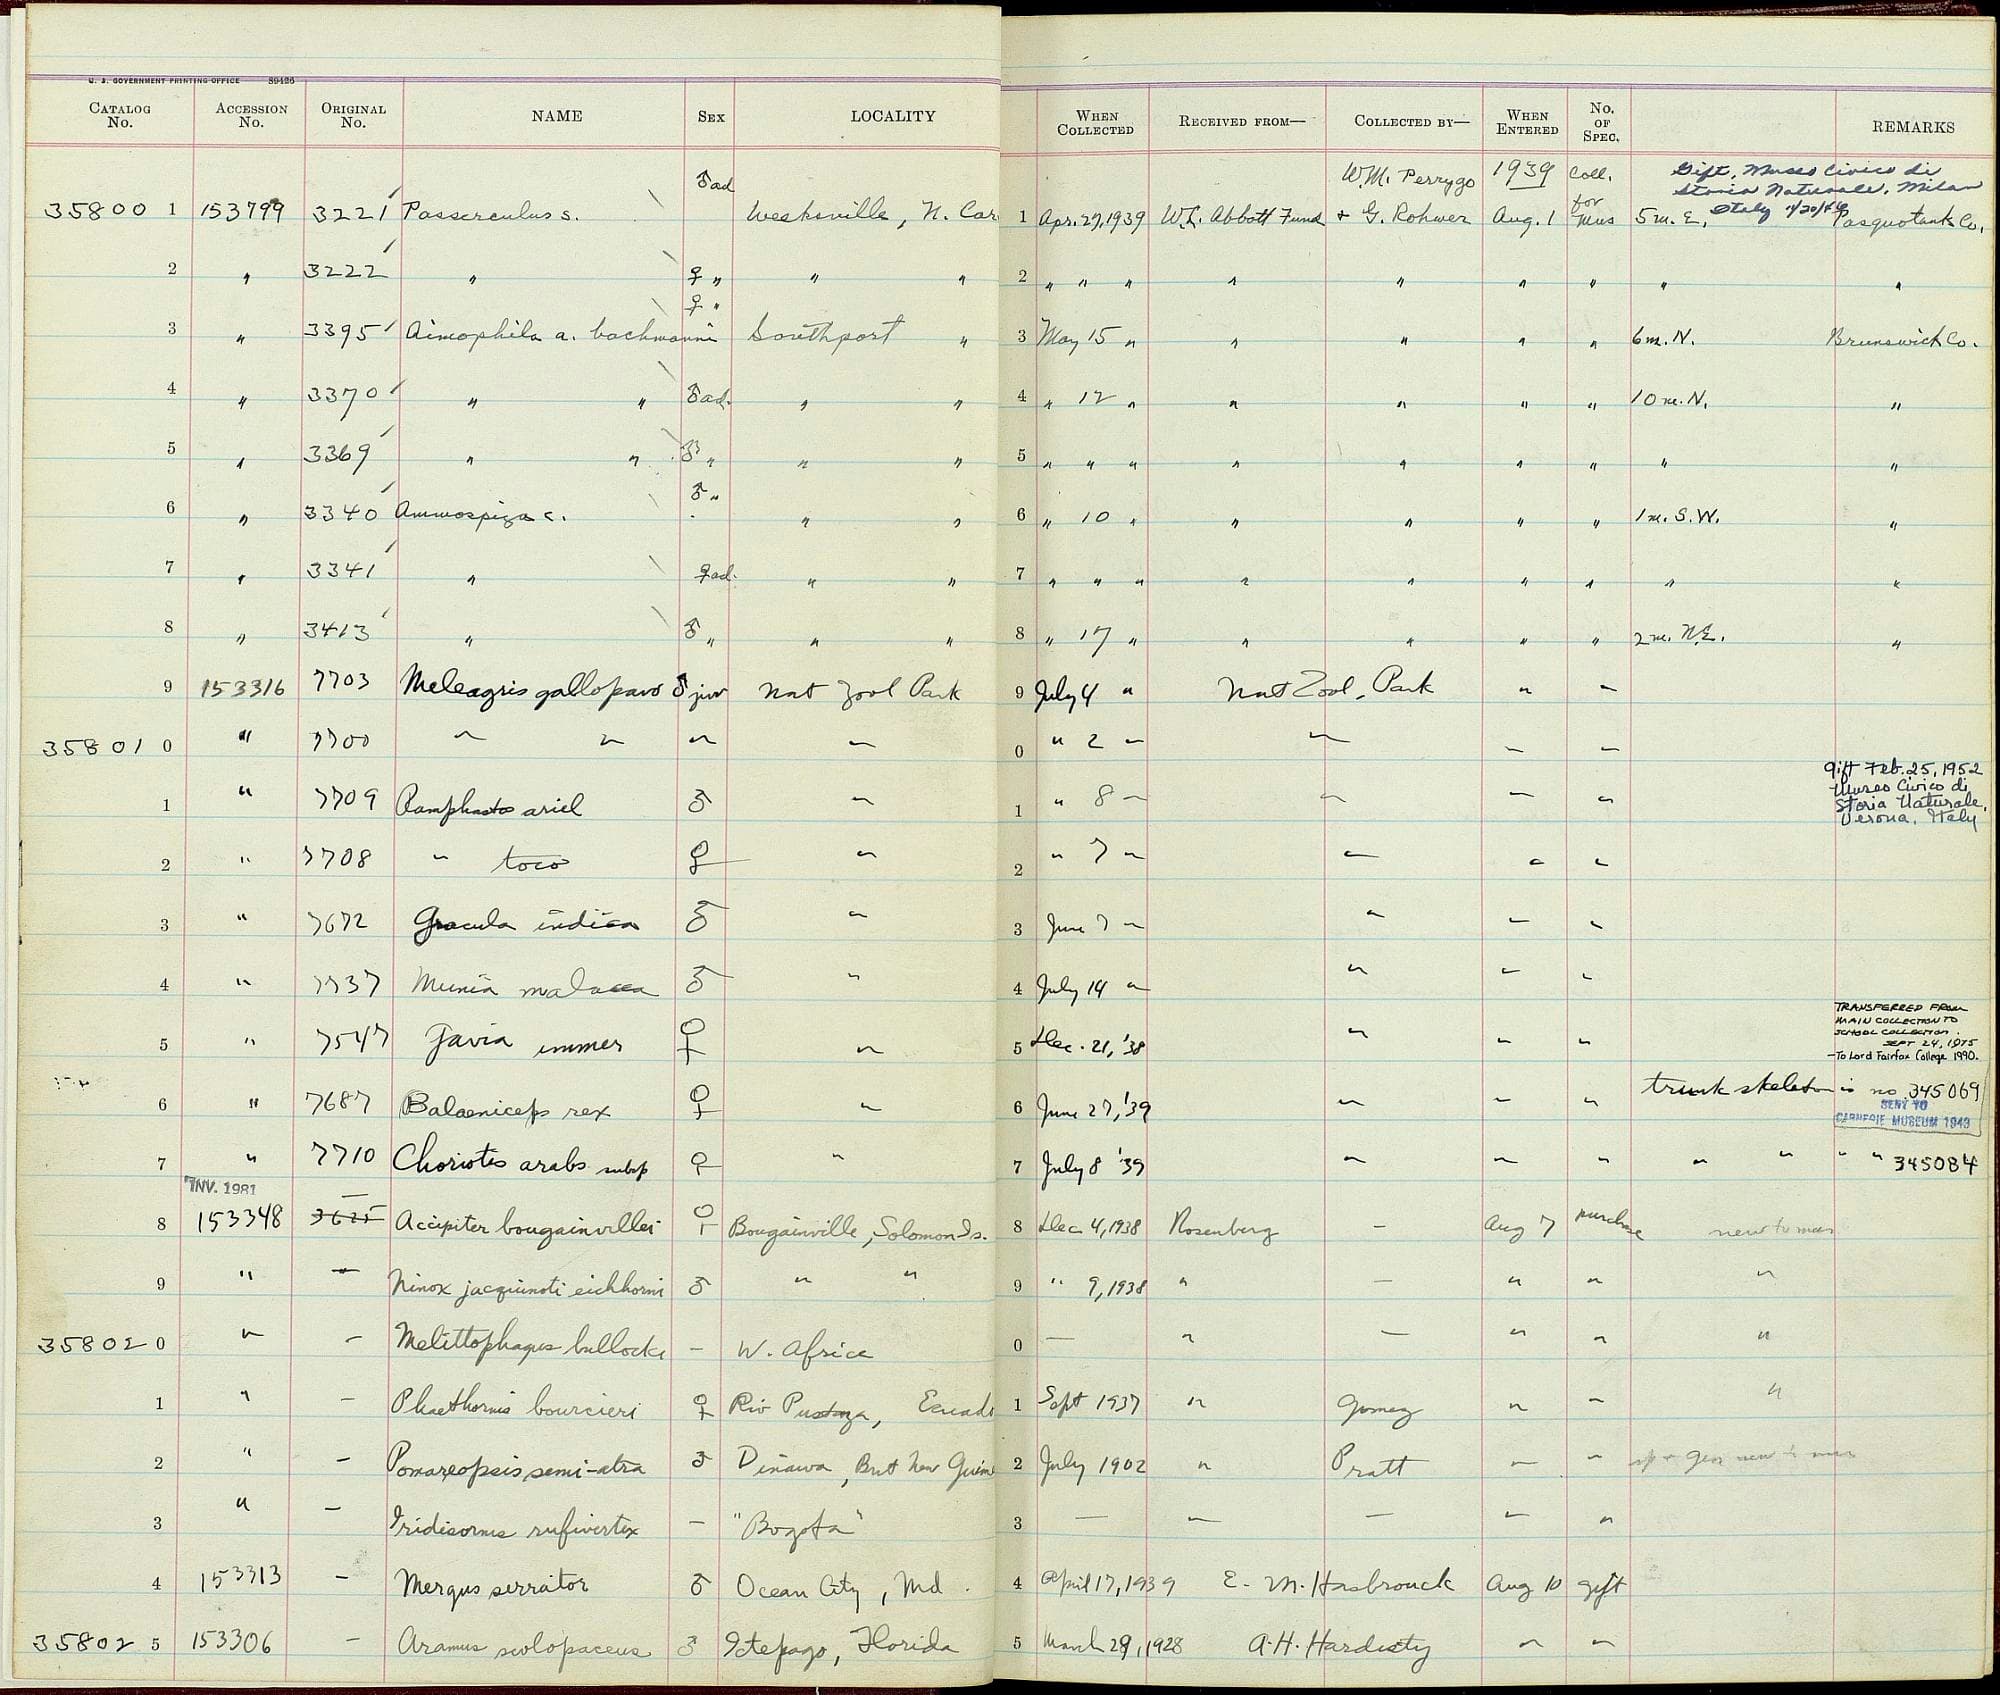 U. S. GOVERNMENT PRINTING OFFICE 39426
CATALOG No. ACCESSION No. ORIGINAL No. NAME SEX LOCALITY WHEN COLLECTED RECEIVED FROM— COLLECTED BY— WHEN ENTERED No. OF SPEC. REMARKS
♂ad W.M. Perrygo 1939 Coll. Gift, Museo Civico di
Storia Naturale, Milan
35800 1 153799 3221 Passerculus s. Weeksville, N. Car 1 Apr. 27, 1939 W.L. Abbott Fund & G. Rohwer Aug. 1 for Mus 5 m. E. Italy Pasquotank Co.
2 " 3222 " ♀ " " " 2 " " " " " " " " "
3 " 3395 Aimophila a. bachmanni ♀ " Southport " 3 May 15 " " " " " 6 m. N. Brunswick Co.
4 " 3370 " " ♂ad. " " 4 " 12 " " " " " 10 m. N. "
5 " 3369 " " ♂ " " " 5 " " " " " " " " "
6 " 3340 Ammospiza c. ♂ " " " 6 " 10 " " " " " 1 m. S.W. "
7 " 3341 " ♀ad. " " 7 " " " " " " " " "
8 " 3413 " ♂ " " " 8 " 17 " " " " " 2 m. N.E. "
9 153316 7703 Meleagris gallopavo ♂ juv Nat Zool Park 9 July 4 " Nat Zool. Park " "
35801 0 " 7700 " " " " 0 " 2 " " " "
1 " 7709 Ramphastos ariel ♂ " 1 " 8 " " " " Gift Feb. 25, 1952
Museo Civico di
Storia Naturale,
Verona, Italy
2 " 7708 " toco ♀ " 2 " 7 " " " "
3 " 7672 Gracula indica ♂ " 3 June 7 " " " "
4 " 7737 Munia malacca ♂ " 4 July 14 " " " "
TRANSFERRED FROM
MAIN COLLECTION TO
SCHOOL COLLECTION.
SEPT 24, 1975
5 " 7547 Gavia immer ♀ " 5 Dec. 21, '38 " " " —To Lord Fairfax College 1990.
6 " 7687 Balaeniceps rex ♀ " 6 June 27, '39 " " " trunk skeleton is no. 345069
SENT TO
CARNEGIE MUSEUM 1943
7 " 7710 Choriotis arabs subsp ♀ " 7 July 8 '39 " " " " " " " 345084
INV. 1981
8 153348 3625 Accipiter bougainvillei ♀ Bougainville, Solomon Is. 8 Dec 4, 1938 Rosenberg — Aug 7 purchase new to mus
9 " — Ninox jacquinoti eichhorni ♂ " " 9 " 9, 1938 " — " " "
35802 0 " — Melittophagus bullocki — W. Africa 0 — " — " " "
1 " — Phaethornis bourcieri ♀ Rio Pastaza, Ecuado 1 Sept 1937 " Gomez " " "
2 " — Pomareopsis semi-atra ♂ Dinawa, Brit New Guine 2 July 1902 " Pratt " " sp + gen new to mus
3 " — Iridisornis rufivertex — "Bogota" 3 — " — " "
4 153313 — Mergus serrator ♂ Ocean City, Md. 4 April 17, 1939 E. M. Hasbrouck Aug 10 gift
35802 5 153306 — Aramus scolopaceus ♂ Florida 5 March 29, 1928 A.H. Hardisty " "